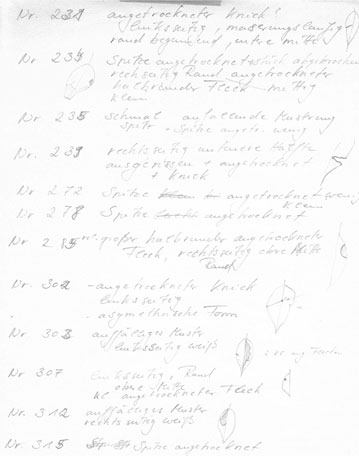 Nr. 231 angetrockneter Knick!
linksseitig, maserungsläufig
rand beginnend, untere Mitte
Nr. 234 Spitze angetrocknet + abgebrochen
rechtsseitig Rand angetrockneter
halbrunder Fleck mittig
klein
Nr 235 schmal auffallende Musterung
Spitz - Spitze angetr. wenig
Nr. 239 rechtsseitig untere Hälfte
ausgerissen + angetrocknet
+ Knick
Nr 272 Spitze angetrocknet wenig
klein
Nr 278 Spitze angetrocknet
Nr 285 großer halbrunder angetrockneter
Fleck, rechtsseitig obere Mitte
Rand
Nr. 302 - angetrockneter Knick
linksseitig
- asymethrische Form
Nr 303 auffälliges Muster
linksseitig weiß
Nr 307 linksseitig, Rand
obere Mitte
kl angetrockneter Fleck
Nr. 312 auffälliges Muster
rechtsseitig weiß
Nr. 315 Spitze angetrocknet